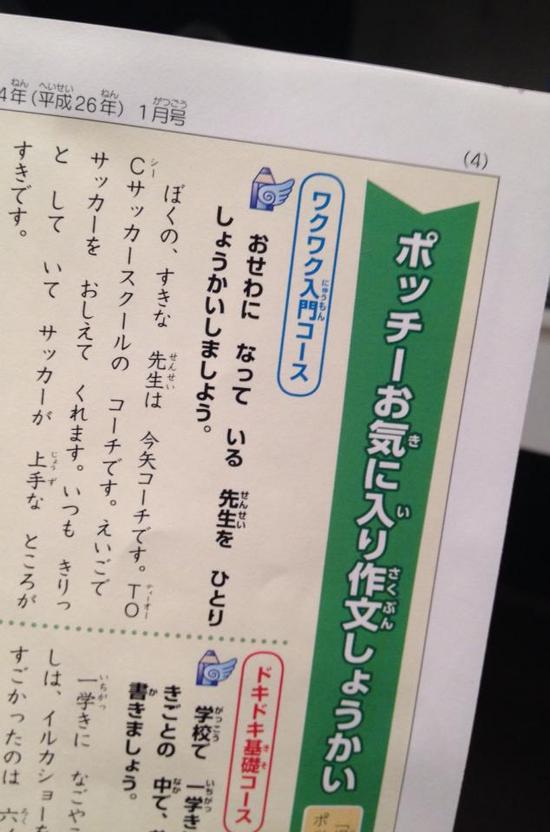 4年(平成26年) 1月号
(4)
ポッチーお気に入り作文しょうかい
ワクワク入門コース
おせわに なって いる 先生を ひとり
しょうかいしましょう。
ぼくの、すきな 先生は 今矢コーチです。TO
Cサッカースクールの コーチです。えいごで
サッカーを おしえて くれます。いつも きりっ
と して いて サッカーが 上手な ところが
すきです。
ドキドキ基礎コース
学校で 一学き
きごとの 中で、
書きましょう。
一学きに なごや
しは、イルカショーを
すごかったのは 六